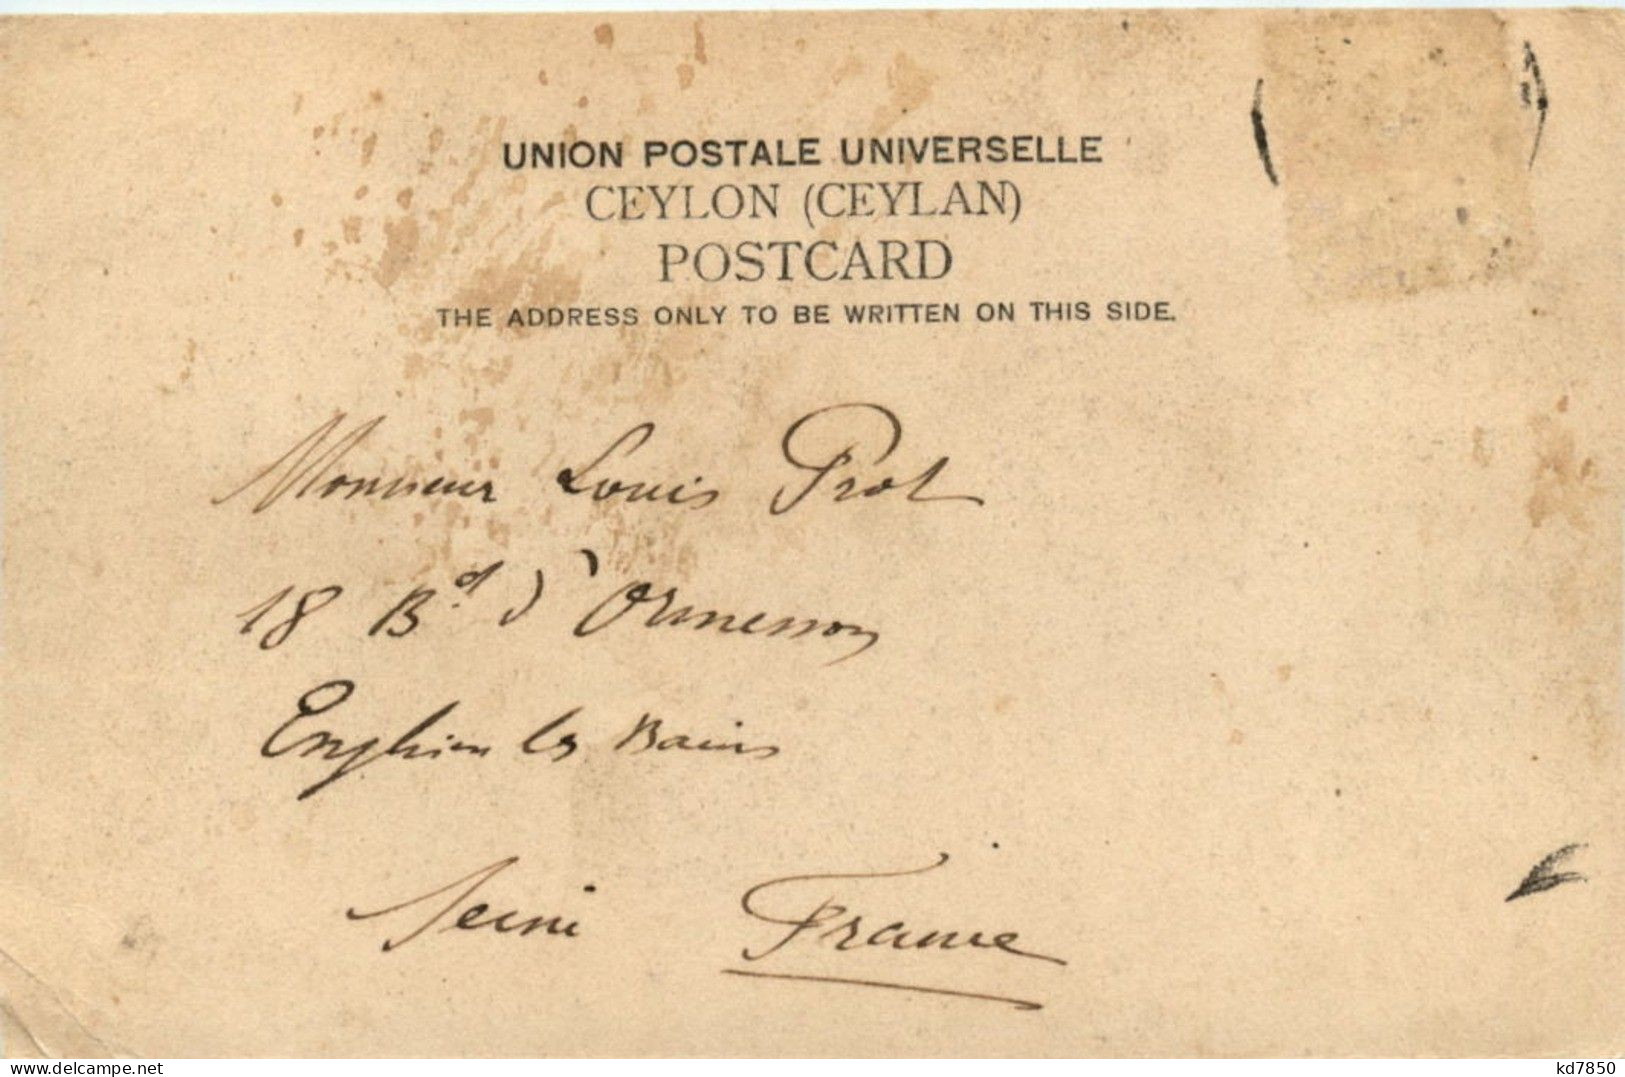 UNION POSTALE UNIVERSELLE
CEYLON (CEYLAN)
POSTCARD
THE ADDRESS ONLY TO BE WRITTEN ON THIS SIDE.
Monsieur Louis Prot
18 Bd. d'Ormesson
Enghien les Bains
Seine France
delcampe.net
kd7850